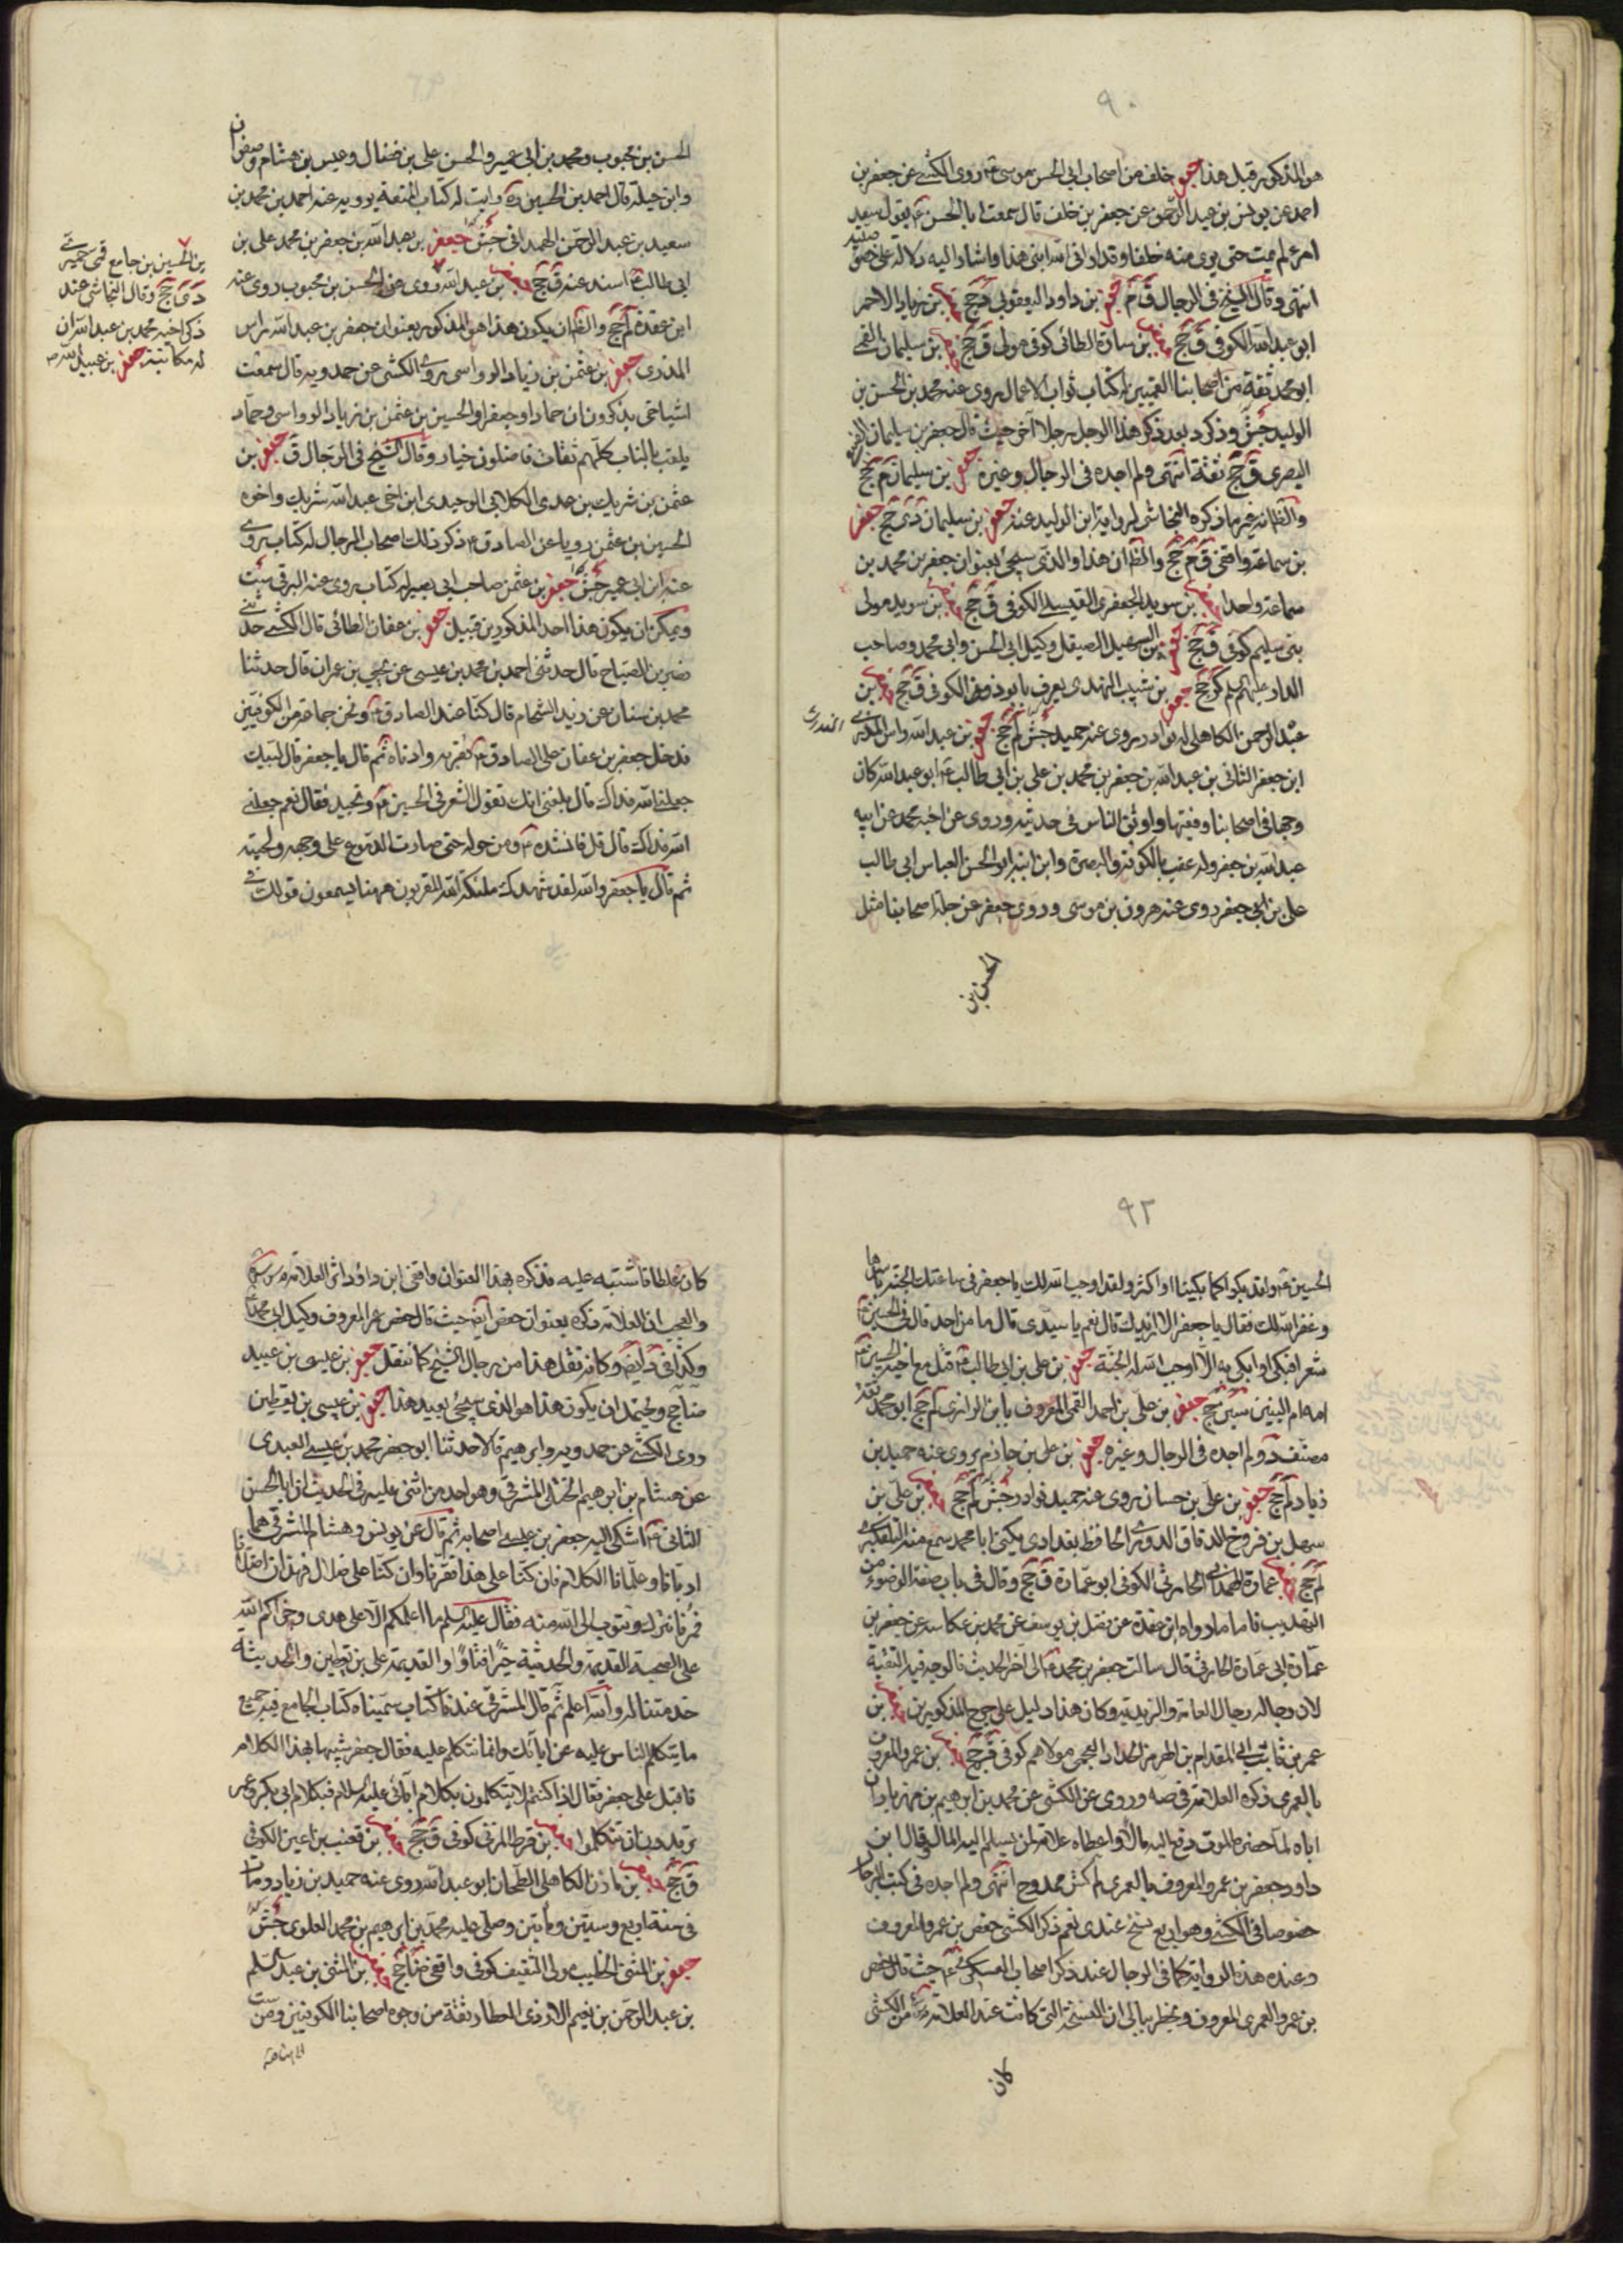 ٩٠
هو المذكور قبل هذا جعفر خلف من اصحاب ابى الحسن موسى ع روى الكشى عن جعفر بن
احمد عن يونس بن عبد الرحمن عن جعفر بن خلف قال سمعت ابا الحسن ع يقول سعد
امرء لم يمت حتى يرى منه خلفا وقد ارانى الله ابنى هذا واشار اليه دلالة على
انتهى وقال الشيخ فى الرجال ق م جعفر بن داود اليعقوبى د جخ جعفر بن زياد الاحمر
ابو عبد الله الكوفى ق جخ جعفر بن سارة الطائى كوفى مولى ق جخ جعفر بن سليمان القمى
ابو محمد ثقة من اصحابنا القميين له كتاب ثواب الاعمال روى عنه محمد بن الحسن بن
الوليد جش وذكر د بعد ذكر هذا الرجل رجلا آخر حيث قال جعفر بن سليمان
البصرى ق جخ ثقة انتهى ولم اجده فى الرجال وغيره جعفر بن سليمان م جخ
والظ انه غير ما ذكره النجاشى لرواية ابن الوليد عنه جعفر بن سليمان دى جخ جعفر
بن سماعة واقفى ق م جخ والظ ان هذا والذى سيجئ بعنوان جعفر بن محمد بن
سماعة واحد جعفر بن سويد الجعفرى القيسى الكوفى ق جخ جعفر بن سويد مولى
بنى سليم كوفى ق جخ جعفر بن السهيل الصيقل وكيل ابى الحسن وابى محمد وصاحب
الدار عليهم السلم كر جخ جعفر بن شبيب النهدى يعرف بابو ذوفن الكوفى ق جخ جعفر بن
عبد الرحمن الكاهلى له نوادر روى عنه حميد جش لم جخ جعفر بن عبد الله راس المذرى
ابن جعفر الثانى بن عبد الله بن جعفر بن محمد بن على بن ابى طالب ع ابو عبد الله كان
وجها فى اصحابنا وفقيها واوثق الناس فى حديثه وروى عن اخيه محمد عن ابيه
عبد الله بن جعفر وله عقب بالكوفة والبصرة وابن ابنه ابو الحسن العباس ابى طالب
على بن ابى جعفر روى عنه هرون بن موسى وروى جعفر عن جلة اصحابنا مثل
الحسن بن
الحسن بن محبوب ومحمد بن ابى عمير والحسن على بن فضال وعبيس بن هشام وصفوان
وابن جبلة قال احمد بن الحسين ره رايت له كتاب المتعة يرويه عنه احمد بن محمد بن
سعيد بن عبد الرحمن الهمدانى جش جعفر بن عبد الله بن جعفر بن محمد على بن
ابى طالب ع اسند عنه ق جخ جعفر بن عبد الله روى عن الحسن بن محبوب روى عنه
ابن عقدة لم جخ والظ ان يكون هذا هو المذكور بعنوان جعفر بن عبد الله راس
المذرى جعفر بن عثمن بن زياد الرواسى روى الكشى عن حمدويه قال سمعت
اشياخى يذكرون ان حمادا وجعفرا والحسين بن عثمن بن زياد الرواسى وحماد
يلقب بالناب كلهم ثقات فاضلون خيار وقال الشيخ فى الرجال ق جعفر بن
عثمن بن شريك بن عدى الكلابى الوحيدى ابن اخى عبد الله شريك واخوه
الحسين بن عثمن رويا عن الصادق ع ذكر ذلك اصحاب الرجال له كتاب روى
عنه ابن ابى عمير جش جعفر بن عثمن صاحب ابى بصير له كتاب روى عنه البرقى ست
ويمكن ان يكون هذا احد المذكورين قبيل جعفر بن عفان الطائى قال الكشى حدثنى
نصر بن الصباح قال حدثنى احمد بن محمد بن عيسى عن يحيى بن عمران قال حدثنا
محمد بن سنان عن زيد الشحام قال كنا عند الصادق ع ونحن جماعة من الكوفيين
فدخل جعفر بن عفان على الصادق ع فقربه وادناه ثم قال يا جعفر قال لبيك
جعلنى الله فداك قال بلغنى انك تقول الشعر فى الحسين ع وتجيد فقال نعم جعلنى
الله فداك قال قل فانشده ع ومن حوله حتى صارت الدموع على وجهه ولحيته
ثم قال يا جعفر والله لقد شهدك ملئكة الله المقربون ههنا يسمعون قولك فى
بن الحسين بن جامع قمى حميرى
دى جخ وقال النجاشى عند
ذكر اخيه محمد بن عبد الله ان
له مكاتبة جعفر بن عبيد الله
٩٢
الحسين ع ولقد بكوا كما بكينا او اكثر ولقد اوجب الله لك يا جعفر فى ساعتك الجنة باسرها
وغفر الله لك فقال يا جعفر الا ازيدك قال نعم يا سيدى قال ما من احد قال فى الحسين ع
شعرا فبكى او ابكى به الا اوجب الله له الجنة جعفر بن على بن ابى طالب ع قتل مع اخيه الحسين ع
امه ام البنين سين جخ جعفر بن على بن احمد القمى المعروف بابن الرازى لم جخ ابو محمد ثقة
مصنف د ولم اجده فى الرجال وغيره جعفر بن على بن حازم روى عنه حميد بن
زياد لم جخ جعفر بن على بن حسان روى عنه حميد نوادر جش لم جخ جعفر بن على بن
سهل بن فروخ الدقاق الدورى الحافظ بغدادى يكنى ابا محمد سمع منه التلعكبرى
لم جخ جعفر عمارة الهمدانى الحارثى الكوفى ابو عمارة ق جخ وقال فى باب صفة الوضوء من
التهذيب فاما ما رواه ابن عقدة عن فضل بن يوسف عن محمد بن عكاشة عن جعفر بن
عمارة ابى عمارة الحارثى قال سالت جعفر بن محمد ع الى آخر الحديث فالوجه فيه التقية
لان رجاله رجال العامة والزيدية وكان هذا دليل على جرح المذكورين جعفر بن
عمر بن ثابت ابى المقدام بن الهرمز الحداد العجلى مولاهم كوفى ق جخ جعفر بن عمرو المعروف
بالعمرى ذكره العلامة فى صه وروى عن الكشى عن محمد بن ابرهيم بن مهزيار ان
اباه لما حضره الموت دفع اليه مالا واعطاه علامة لمن يسلم اليه المال وقال ابن
داود جعفر بن عمرو المعروف بالعمرى لم كش ممدوح انتهى ولم اجده فى كتب الرجال
خصوصا فى الكشى وهو اربع نسخ عندى نعم ذكر الكشى حفص بن عمرو المعروف
وعنده هذه الرواية كما فى الرجال عند ذكر اصحاب العسكرى ع حيث قال حفص
بن عمرو العمرى المعروف ويخطر ببالى ان النسخة التى كانت عند العلامة من الكشى
كان
كان غلطا فاشتبه عليه فذكره بهذا العنوان واقفى ابن داود اثر العلامة
والعجب ان العلامة ذكره بعنوان حفص ايضا حيث قال حفص عمر المعروف وكيل ابى محمد ع
وكذا فى د ايضا وكانه نقل هذا من رجال الشيخ كما ننقل جعفر بن عيسى بن عبيد
ضا جخ ويحتمل ان يكون هذا هو الذى سيجئ بعيد هذا جعفر بن عيسى بن يقطين
روى الكشى عن حمدويه وابرهيم قالا حدثنا ابو جعفر محمد بن عيسى العبيدى
عن هشام بن ابرهيم الختلى المشرقى وهو احد من اثنى عليه فى الحديث ان ابا الحسن
الثانى ع اشتكى اليه جعفر بن عيسى اصحابه ثم قال عن يونس وهشام المشرقى هما
ادبانا وعلمانا الكلام فان كنا على هذا فقرنا وان كنا على ضلال فهذان اضلانا
فمرنا نتركه ونتوب الى الله منه فقال عليه السلم ما اعلمكم الا على هدى وجزاكم الله
على الصحبة القديمة والحديثة خيرا فتاولوا القديمة على بن يقطين والحديثة
خدمتنا له والله اعلم ثم قال المشرقى عندنا كتاب سميناه كتاب الجامع فيه جميع
ما يتكلم الناس عليه عن ابائك وانما نتكلم عليه فقال جعفر شبيها بهذا الكلام
فاقبل على جعفر فقال اذا كنتم لا تتكلمون بكلام آبائى عليهم السلام فبكلام ابى بكر وعمر
تريدون ان تتكلموا جعفر بن قرط المزنى كوفى ق جخ جعفر بن قعنب بن اعين الكوفى
ق جخ جعفر بن مازن الكاهلى الطحان ابو عبد الله روى عنه حميد بن زياد ومات
فى سنة اربع وستين ومأتين وصلى عليه محمد بن ابرهيم بن محمد العلوى جش
جعفر بن المثنى الخطيب مولى الثقيف كوفى واقفى ضا جخ جعفر بن المثنى بن عبد السلم
بن عبد الرحمن بن نعيم الازدى العطار ثقة من وجوه اصحابنا الكوفيين ومن بيت